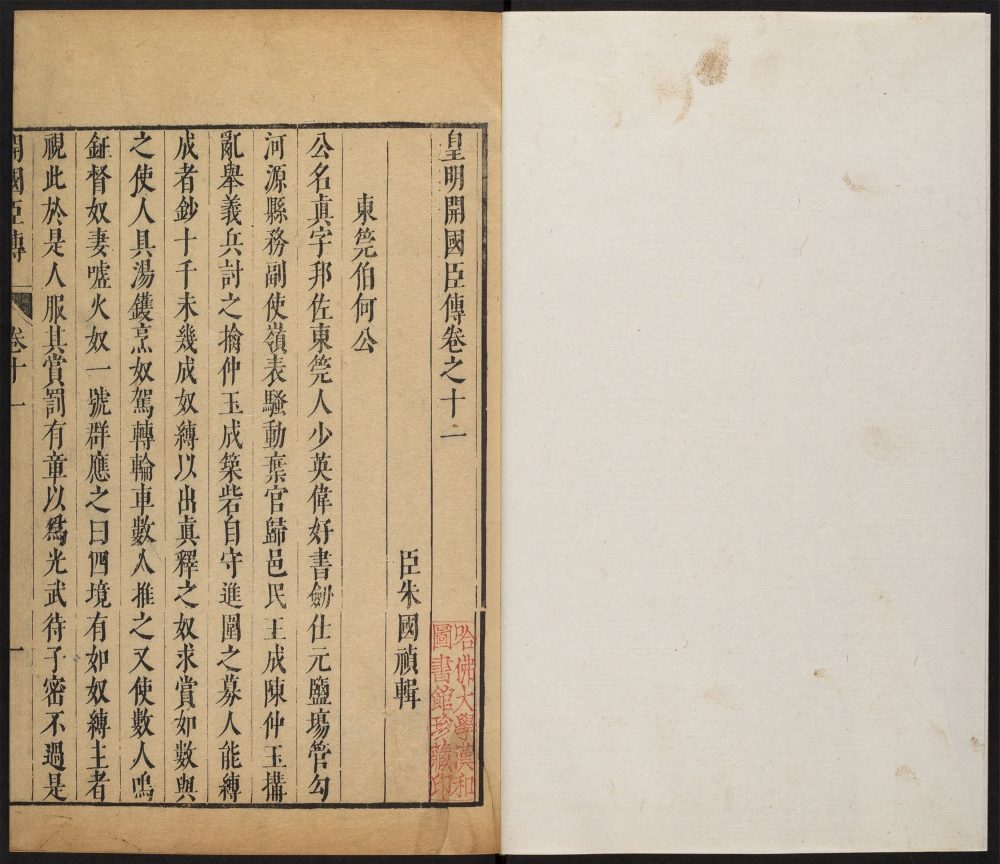 皇明開國臣傳卷之十一
臣朱國禎輯
東筦伯何公
公名真字邦佐東筦人少英偉好書劒仕元鹽塲管勾
河源縣務副使嶺表騷動棄官歸邑民王成陳仲玉搆
亂舉義兵討之擒仲玉成築砦自守進圍之募人能縛
成者鈔十千未幾成奴縛以出真釋之奴求賞如數與
之使人具湯鑊烹奴駕轉輪車數人推之又使數人鳴
鉦督奴妻噓火奴一號群應之曰四境有如奴縛主者
視此於是人服其賞罰有章以爲光武待子密不過是
開國臣傳 卷十一 一
哈佛大學漢和
圖書館珍藏印